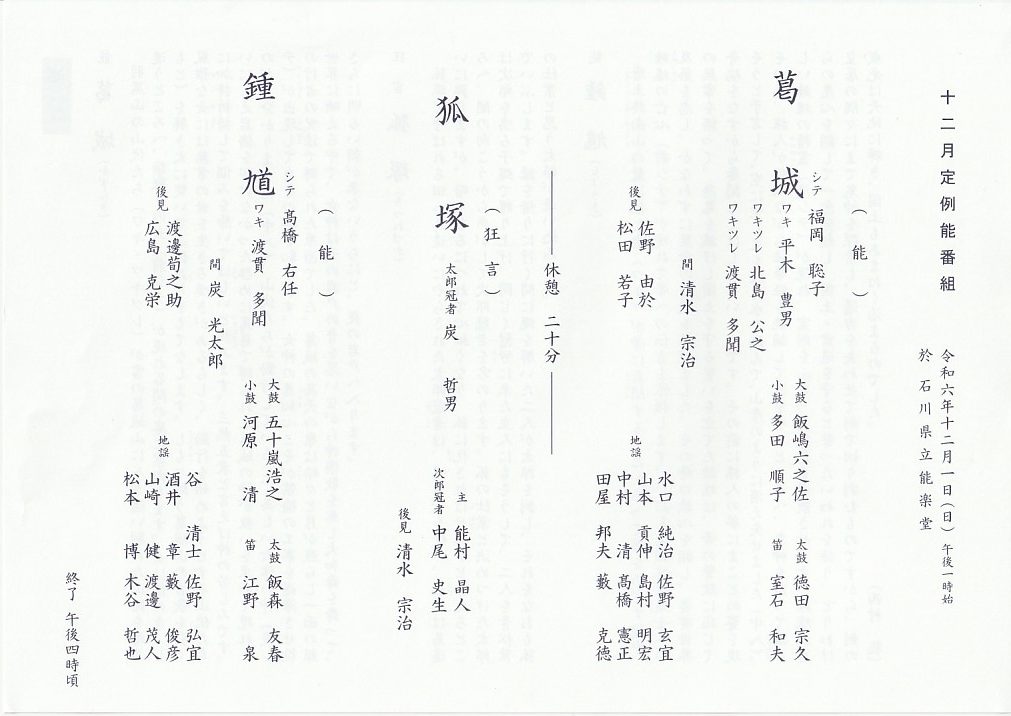 十二月定例能番組
令和六年十二月一日(日) 午後一時始
於 石川県立能楽堂
(能)
葛城
シテ 福岡 聡子
ワキ 平木 豊男
ワキツレ 北島 公之
ワキツレ 渡貫 多聞
間 清水 宗治
大鼓 飯嶋六之佐
小鼓 多田 順子
太鼓 徳田 宗久
笛 室石 和夫
後見 佐野 由於
松田 若子
地謡 水口 純治 佐野 玄宜
山本 貢伸 島村 明宏
中村 清 髙橋 憲正
田屋 邦夫 藪 克徳
休憩 二十分
(狂言)
狐塚
太郎冠者 炭 哲男
主 能村 晶人
次郎冠者 中尾 史生
後見 清水 宗治
(能)
鍾馗
シテ 髙橋 右任
ワキ 渡貫 多聞
間 炭 光太郎
大鼓 五十嵐浩之
小鼓 河原 清
太鼓 飯森 友春
笛 江野 泉
後見 渡邊荀之助
広島 克栄
地謡 谷 清士 佐野 弘宜
酒井 章 藪 俊彦
山崎 健 渡邊 茂人
松本 博 木谷 哲也
終了 午後四時頃